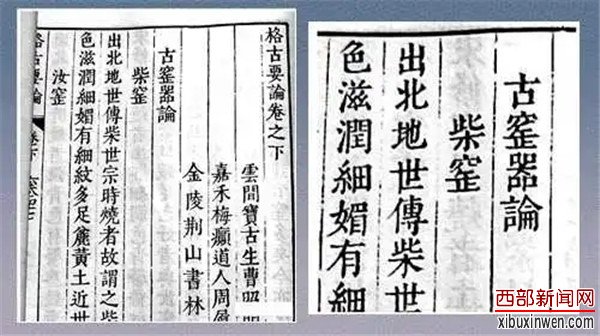 格古要論卷之下
雲間寶古生曹昭明
嘉禾梅癲道人周履
金陵荊山書林
古窰器論
柴窰
出北地世傳柴世宗時燒者故謂之柴
色滋潤細媚有細紋多足麄黃土近世
汝窰
格古要論 卷下
古窰器論
柴窰
出北地世傳柴世
色滋潤細媚有細
西部新闻网
xibuxinwen.com